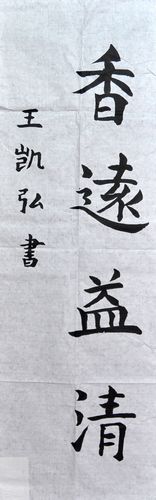 香遠益清
王凯弘書